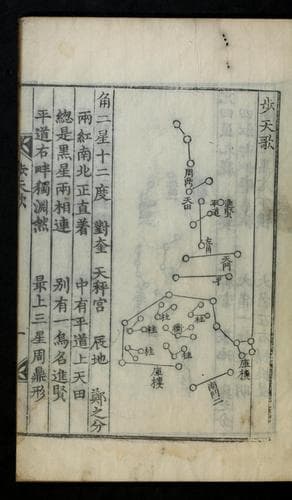 步天歌
周鼎
天田
進賢
平道
左角
天門
平
柱
柱
衡
柱
柱
柱
庫樓
庫樓
南門二
角二星十二度 對奎 天秤宮 辰地 鄭之分
兩紅南北正直着 中有平道上天田
總是黑星兩相連 別有一烏名進賢
平道右畔獨淵然 最上三星周鼎形
步天歌